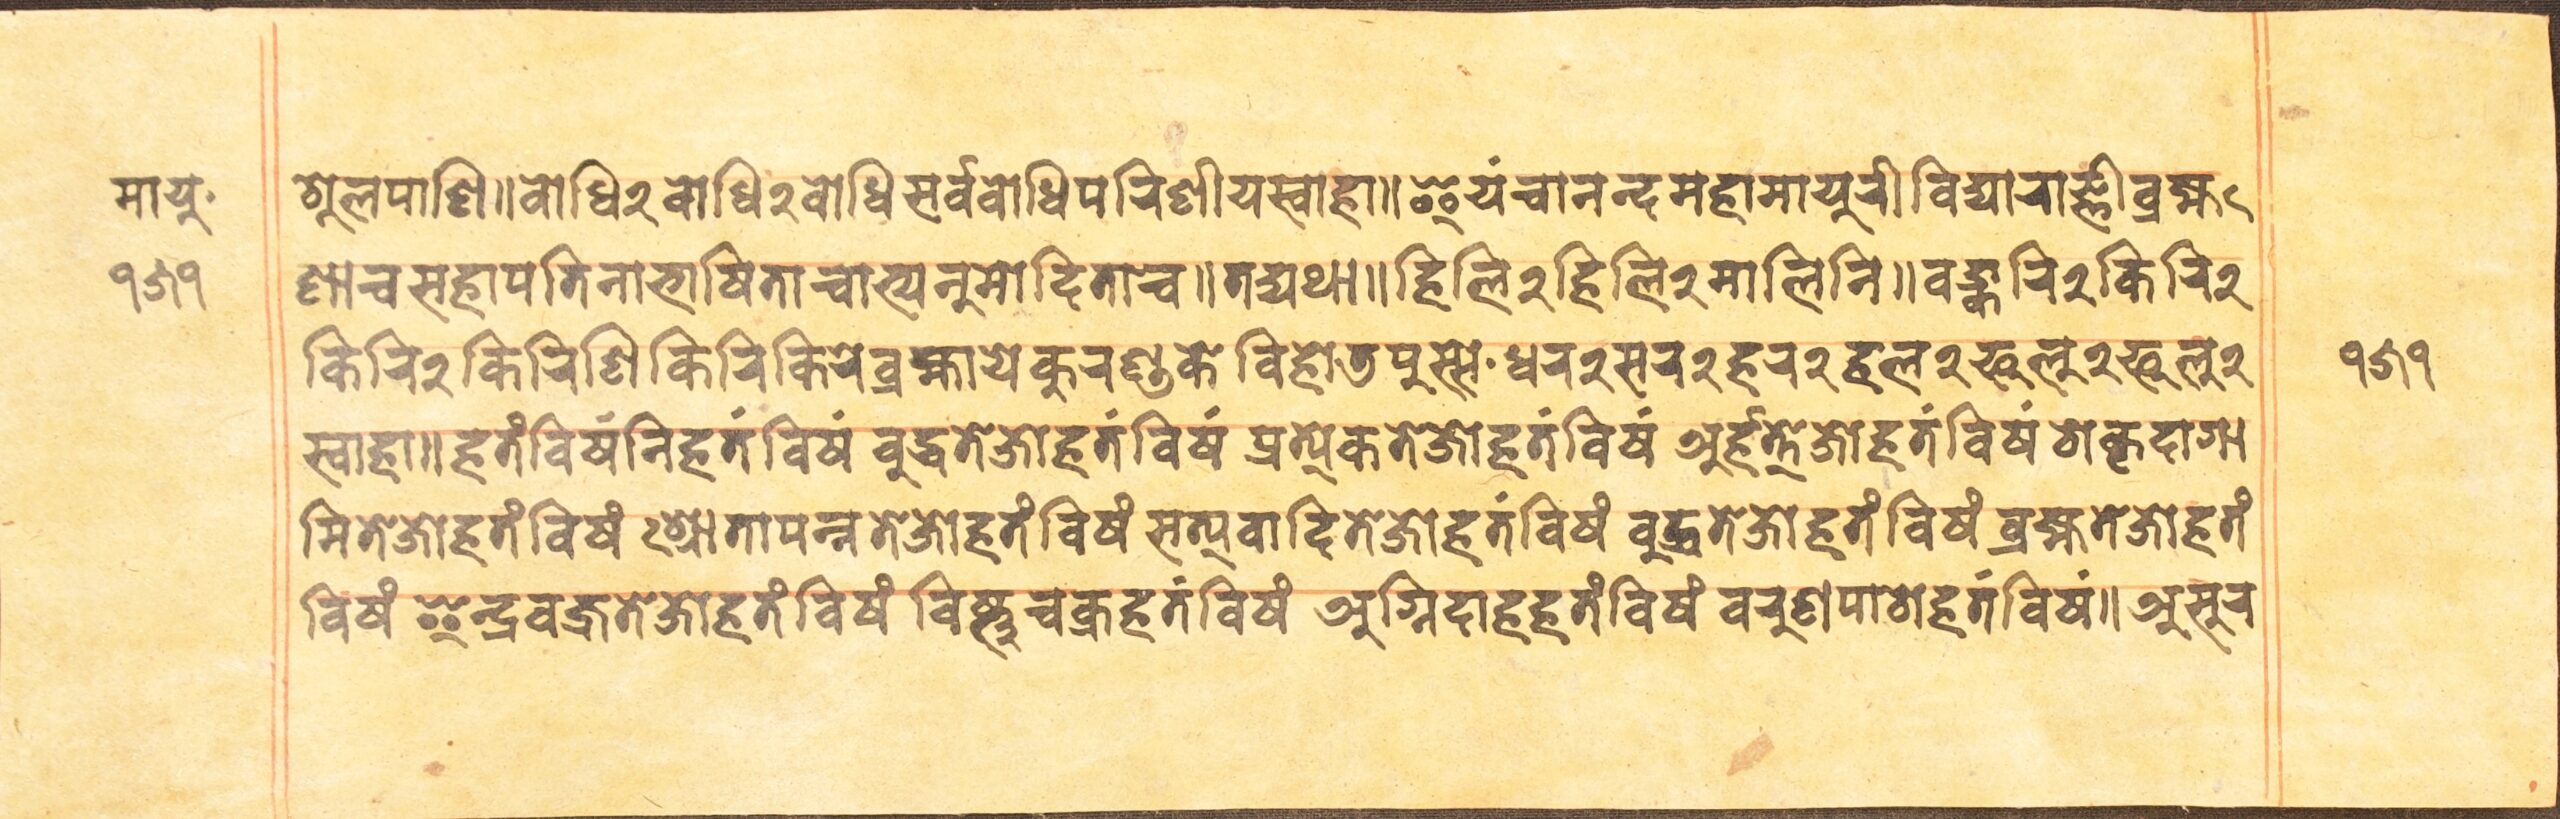 मायु॰ शूलपाणि॥ बोधि२ बोधि२ बोधि सर्वबोधिपरिणीय स्वाहा॥ इयं चानन्द महामायुरीविद्याराज्ञी ब्रह्म
१५१ णा च सहापतिना भाषिता चाभ्यनुमोदिता च॥ तद्यथा॥ हिलि२ हिलि२ मालिनि॥ वङ्कारि२ किरि२
किरि२ किरिणि किरि किरे ब्रह्माये कुरण्डके विहोड पुस्से॰ धर२ सर२ हर२ हल२ फुलु२ फुलु२ १५१
स्वाहा॥ हतं विषं निहतं विषं बुद्धतेजोहतं विषं प्रत्येकतेजोहतं विषं अर्हत्तेजोहतं विषं शकृदागा
मितेजोहतं विषं श्रोतापन्नतेजोहतं विषं सत्यवादितेजोहतं विषं बुद्धतेजोहतं विषं ब्रह्मतेजोहतं
विषं इन्द्रवज्रतेजोहतं विषं विष्णुचक्रहतं विषं अग्निदाहहतं विषं वरुणपाशेहतं विषं॥ असुर